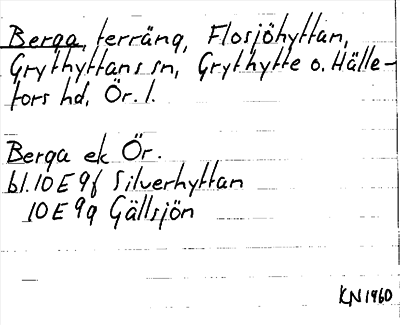 Berga, terräng, Flosjöhyttan,
Grythyttans sn, Grythytte o. Hälle-
fors hd, Ör. l.
Berga ek Ör.
bl. 10 E 9f Silverhyttan
10 E 9g Gällsjön
KN 1960